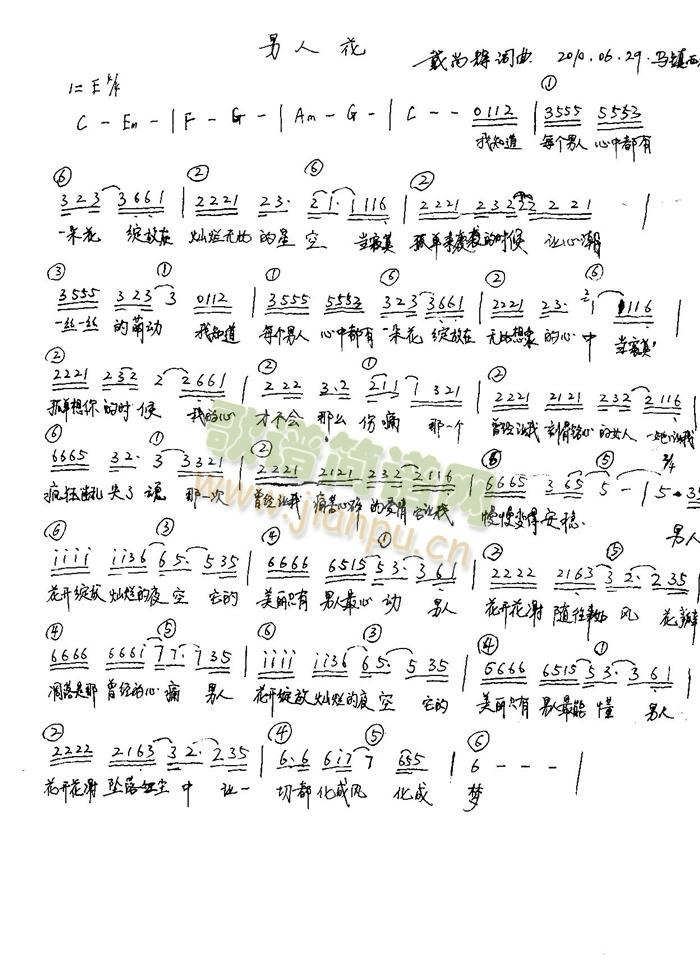 男人花
戴尚辉词曲 2010.06.29.马镇西
1=E 4/4
C - Em - | F - G - | Am - G - | C - - 0112 | 3555 5553
我知道 每个男人 心中都有
323 3661 | 2221 23· 21· 1116 | 2221 2322 2 221 - |
一朵花 绽放在 灿烂无比 的星空 当寂寞 孤单来袭的时候 让心潮
3555 323 3 0112 | 3555 5553 323 3661 | 2221 23· 21 1116
一丝一丝 的萌动 我知道 每个男人 心中都有 一朵花 绽放在 无比想象 的心中 当寂寞
2221 232 2 2661 | 222 3·2 211 1 321 | 2221 2121 232 2116
孤单想你 的时候 我的心 才不会 那么 伤痛 那一个 曾经让我 刻骨铭心 的女人 让我
6665 32· 3 3321 | 2221 2121 232 2116 | 6665 365 5 - | 5·35
疯狂 失了魂 那一次 曾经让我 痛苦心碎 的爱情 它让我 慢慢变得 安稳 男人
iiii ii36 65· 535 | 6666 6515 53· 361 | 2222 2163 32· 235
花开绽放 灿烂的夜空 它的 美丽只有 男人最心动 男人 花开花谢 随往事如风 花瓣
6666 666i 77· 735 | iiii ii36 65· 535 | 6666 6515 53· 361
凋落是那 曾经的心痛 男人 花开绽放 灿烂的夜空 它的 美丽只有 男人最能懂 男人
2222 2163 32· 235 | 6·6 6i7 7 655 | 6 - - - |
花开花谢 坠落红尘中 让一 切都 化成风 化成 梦
歌谱简谱网
www.jianpu.cn